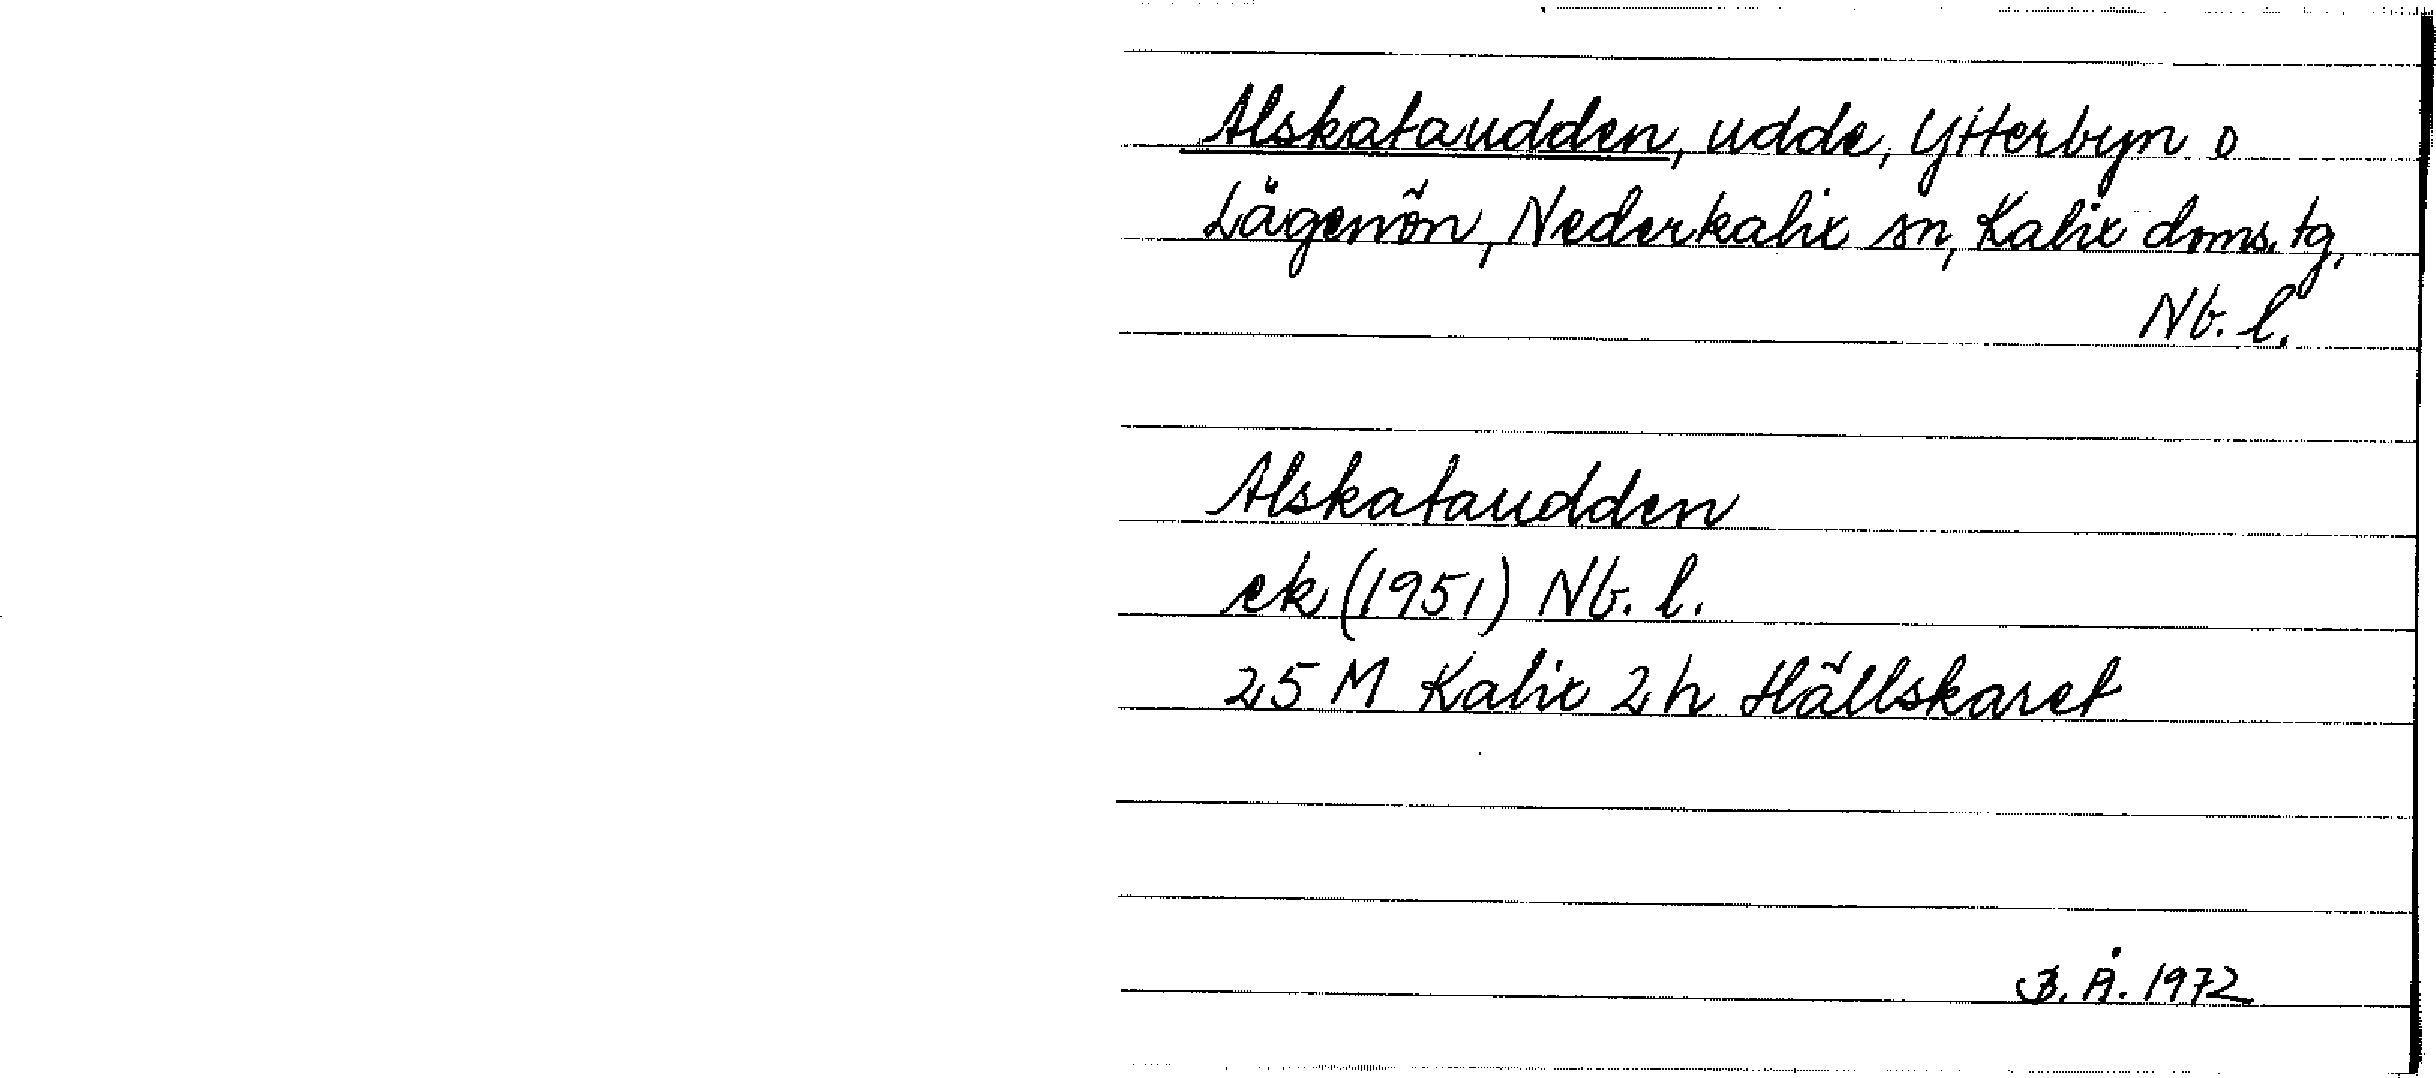 Alskataudden, udde, Ytterbyn o
Lågenön, Nederkalix sn, Kalix doms. tg,
Nb. l.
Alskataudden
ek (1951) Nb. l.
25 M Kalix 2h Hällskaret
B. Å. 1972